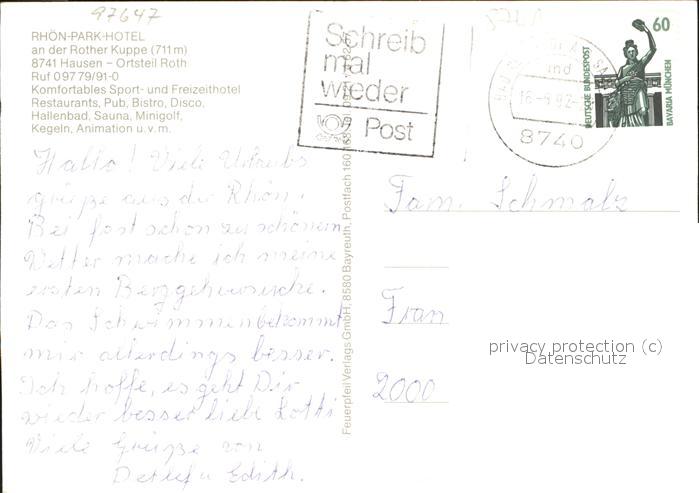 97647
RHÖN-PARK-HOTEL
an der Rother Kuppe (711m)
8741 Hausen – Ortsteil Roth
Ruf 09779/91-0
Komfortables Sport- und Freizeithotel
Restaurants, Pub, Bistro, Disco,
Hallenbad, Sauna, Minigolf,
Kegeln, Animation u.v.m.
Hallo! Viele Urlaubs
grüße aus der Rhön.
Bei fast schon zu schönem
Wetter mache ich meine
ersten Berggehversuche.
Das Schwimmen bekommt
mir allerdings besser.
Ich hoffe, es geht Dir
wieder besser liebe Lotti
Viele Grüße von
Detlef u Edith.
Feuerpfeil Verlags GmbH, 8580 Bayreuth, Postfach 160
Schreib
mal
wieder
Post
8740
60
DEUTSCHE BUNDESPOST
BAVARIA MÜNCHEN
Fam. Schmalz
Fran
2000
privacy protection (c)
Datenschutz